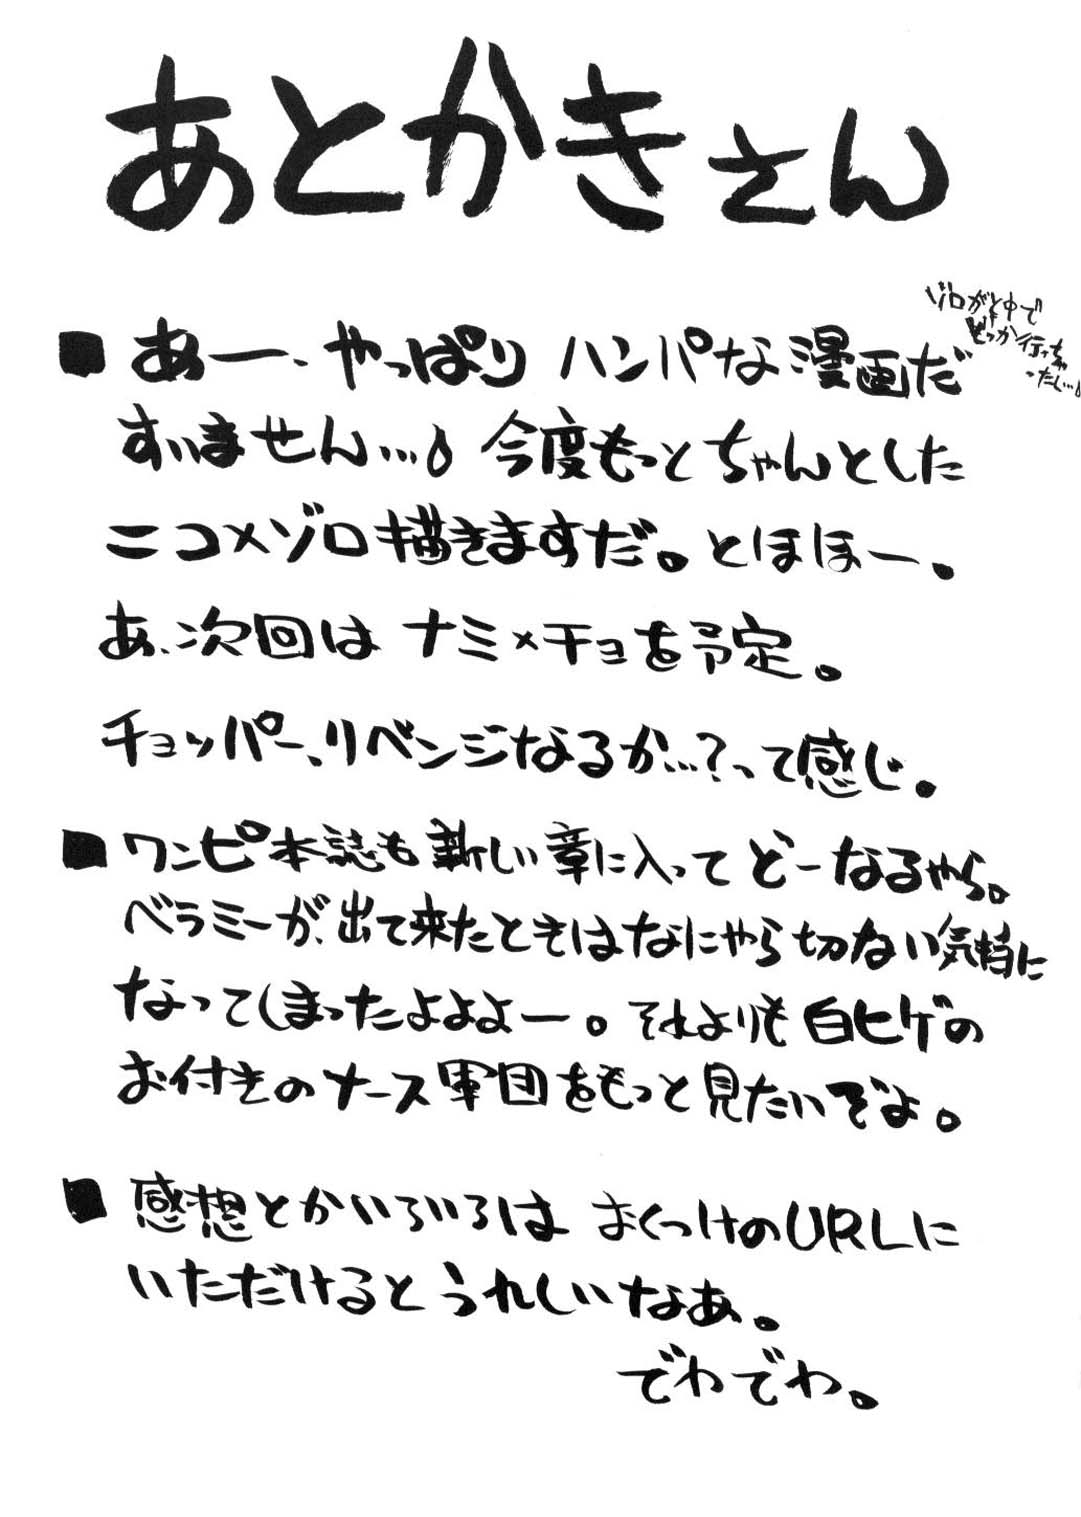 あとかきさん
■あー、やっぱりハンパな漫画だ
ゾロが途中で
どっか行っちゃ
ったし…
すいません…今度もっとちゃんとした
ニコ×ゾロ描きますだ。とほほー。
あ、次回はナミ×チョを予定。
チョッパー、リベンジなるか…?って感じ。
■ワンピ本誌も新しい章に入ってどーなるやら。
ベラミーが出て来たときはなにやら切ない気持に
なってしまったよよよー。それよりも白ヒゲの
お付きのナース軍団をもっと見たいぞよ。
■感想とかいろいろはおくづけのURLに
いただけるとうれしいなあ。
でわでわ。